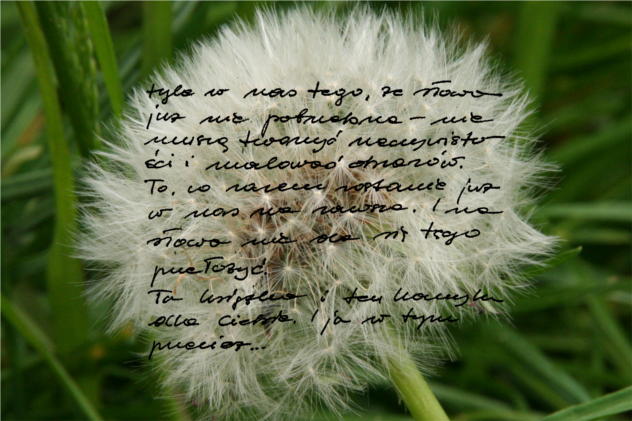 tyle w nas tego, że słowa
już nie potrzebne - nie
muszą tworzyć rzeczywisto-
ści i malować obrazów.
To, co razem zostanie już
w nas na zawsze. I na
słowa nie da się tego
przełożyć.
Ta książka i ten kamyk
dla Ciebie. I ja w tym
przecież...